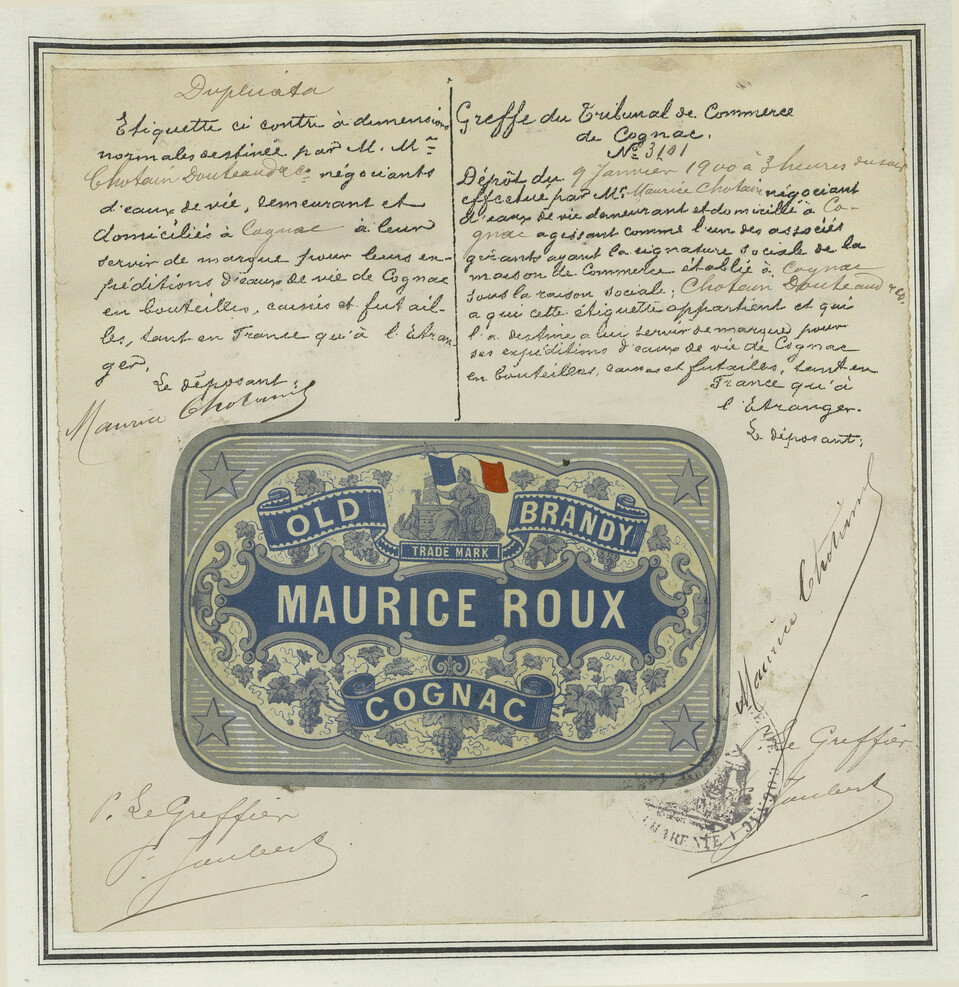 Duplicata
Etiquette ci contre à dimensions
normales destinée par M. M.rs
Chotain Douteaud & Co négociants
d'eaux de vie, demeurant et
domiciliés à Cognac à leur
servir de marque pour leurs ex-
péditions d'eaux de vie de Cognac
en bouteilles, caisses et futail-
les, tant en France qu'à l'Etran-
ger.
Le déposant:
Maurice Chotain
Greffe du Tribunal de Commerce
de Cognac.
No 3101
Dépôt du 9 Janvier 1900 à 3 heures du soir
effectué par Mr. Maurice Chotain négociant
d'eaux de vie demeurant et domicilié à Co-
gnac agissant comme l'un des associés
gérants ayant la signature sociale de la
maison de Commerce établie à Cognac
sous la raison sociale, Chotain Douteaud & Co.
a qui cette étiquette appartient et qui
l'a destine a lui servir de marque pour
ses expéditions d'eaux de vie de Cognac
en bouteilles, caisses et futailles, tant en
France qu'à
l'Etranger.
Le déposant;
Maurice Chotain
OLD BRANDY
TRADE MARK
MAURICE ROUX
COGNAC
P. Le Greffier
P. Joubert
Le Greffier
Joubert
CHARENTE